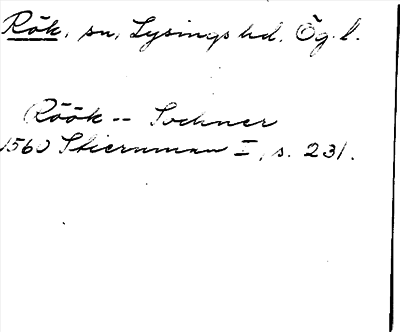 Rök, sn, Lysings hd, Ög. l.
Röök -- Sochner
1560 Stiernman I, s. 231.